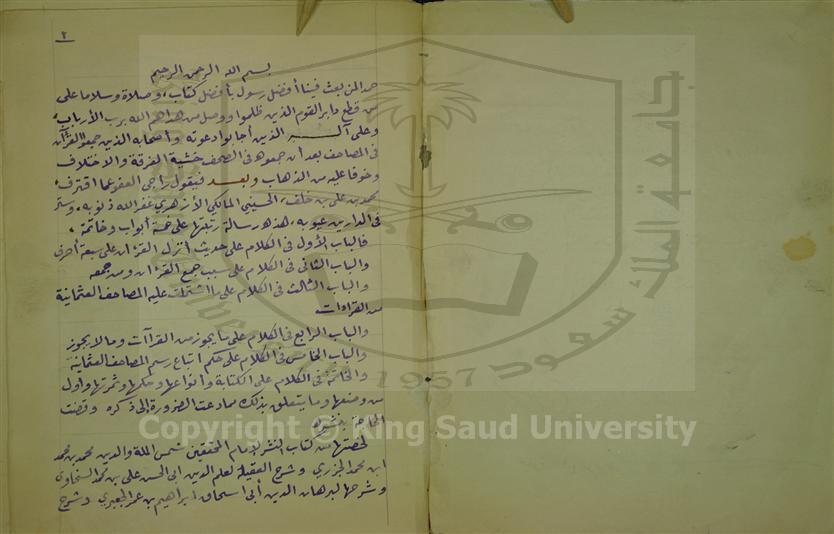 ٢
بسم الله الرحمن الرحيم
حمدا لمن بعث فينا أفضل رسول بأفضل كتاب، وصلاة وسلاما على
من قطع دابر القوم الذين ظلموا ووصل من هداهم الله برب الأرباب،
وعلى آله الذين أجابوا دعوته وأصحابه الذين جمعوا القرآن
فى المصاحف بعد أن جمعوه فى الصحف خشية الفرقة والاختلاف
وخوفا عليه من الذهاب وبعد فيقول راجى العفو عما اقترف،
محمد بن على بن خلف، الحسينى المالكى الأزهرى غفر الله ذنوبه، وستر
فى الدارين عيوبه، هذه رسالة رتبتها على خمسة أبواب وخاتمة،
فالباب الأول فى الكلام على حديث أنزل القرءان على سبعة أحرف
والباب الثانى فى الكلام على سبب جمع القرءان ومن جمعه
والباب الثالث فى الكلام على ما اشتملت عليه المصاحف العثمانية
من القراءات
والباب الرابع فى الكلام على ما يجوز من القراآت وما لا يجوز
والباب الخامس فى الكلام على حكم اتباع رسم المصاحف العثمانية
والخاتمة فى الكلام على الكتابة وأنواعها وحكمها وثمرتها وأول
من وضعها وما يتعلق بذلك مما دعت الضرورة إلى ذكره وقضت
الحاجة بنشره
لخصتها من كتاب النشر لإمام المحققين شمس الملة والدين محمد بن محمد
ابن محمد الجزرى وشرح العقيلة لعلم الدين ابى الحسن على بن محمد السخاوى
وشرحها لبرهان الدين أبى اسحاق ابراهيم بن عمر الجعبرى وشرح
جامعة الملك سعود
1957
Copyright © King Saud University